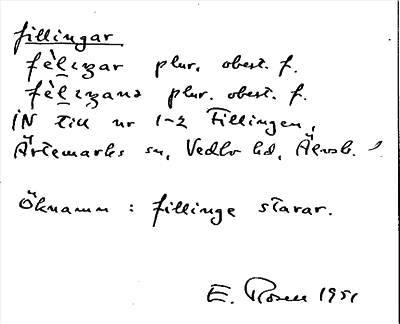 fillingar
fèlıŋar plur. obest. f.
fèlıŋana plur. best. f.
IN till nr 1-2 Fillingen,
Ärtemarks sn, Vedbo hd, Älvsb. l.
Öknamn : fillinge starar.
E. Rosell 1951